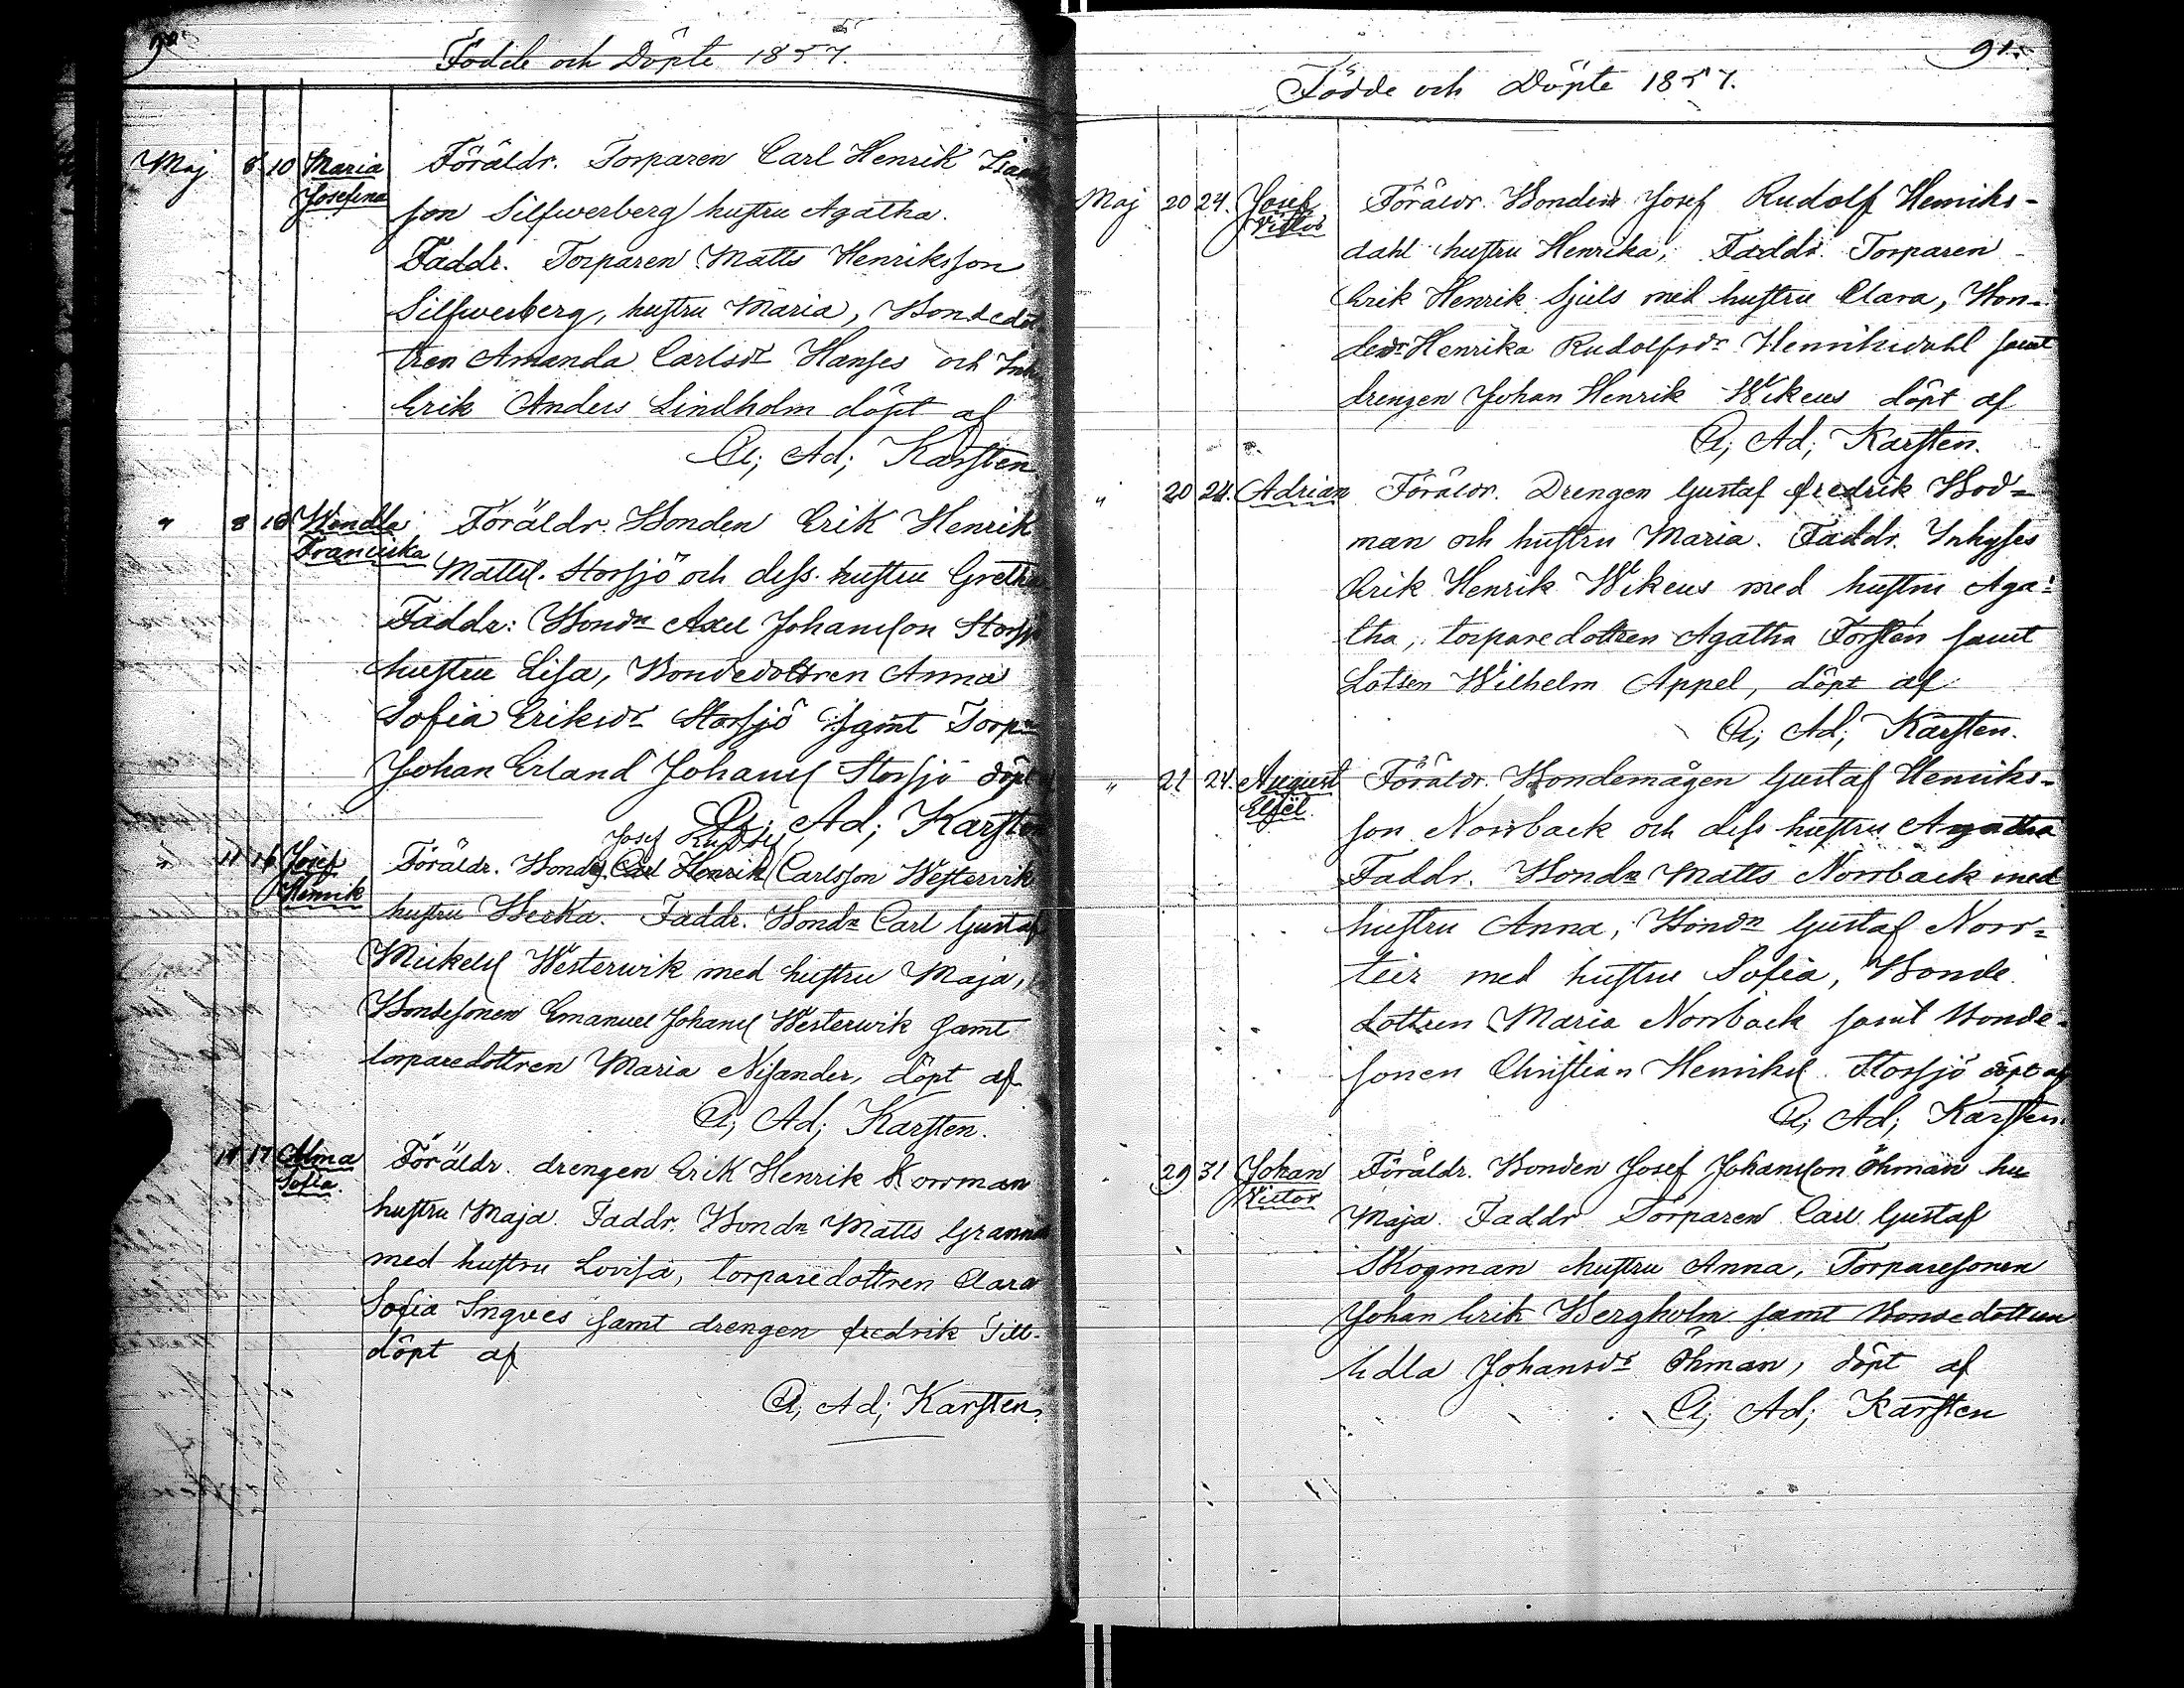 90
Födde och Döpte 1857.
Maj 8 10 Maria Josefina
Föräldr. Torparen Carl Henrik Isaak
son Silfwerberg hustru Agatha.
Faddr. Torparen Matts Henriksson
Silfwerberg, hustru Maria, Bondedot
tren Amanda Carlsdr Hanses och Inh
Erik Anders Lindholm döpt af
A; Ad; Karsten
" 8 10 Wendla Franciska
Föräldr. Bonden Erik Henrik
Mattsl. Storsjö och dess hustru Gretha
Faddr: Bondn Axel Johansson Storsjö
hustru Lisa, Bondedottren Anna
Sofia Eriksdr Storsjö samt Torpn
Johan Erland Johansl Storsjö döpt
A; Ad; Karsten
" 11 16 Josef Henrik
Josef Rudolf
Föräldr. Bond. Carl Henrik Carlsson Westervik
hustru Berka. Faddr. Bondn Carl Gustaf
Mickelsl Westerwik med hustru Maja,
Bondesonen Emanuel Johansl Westerwik samt
torparedottren Maria Nisander, döpt af
A; Ad; Karsten.
14 17 Alma Sofia.
Föräldr. drengen Erik Henrik Korrman
hustru Maja. Faddr. Bondn Matts Granna
med hustru Lovisa, torparedottren Clara
Sofia Ingves samt drengen fredrik Till-
döpt af
A; Ad; Karsten.
91.
Födde och Döpte 1857.
Maj 20 24. Josef Viktor
Föräldr. Bonden Josef Rudolf Henriks-
dahl hustru Henrika, Faddr. Torparen
Erik Henrik Sjuls med hustru Clara, Bon-
dedr Henrika Rudolfsdr Henriksdahl samt
drengen Johan Henrik Wikeus döpt af
A; Ad; Karsten.
" 20 24. Adrian
Föräldr. Drengen Gustaf fredrik Bod-
man och hustru Maria. Faddr. Inhyses
Erik Henrik Wikeus med hustru Aga-
tha, torparedottren Agatha Torstén samt
Lotsen Wilhelm Appel, döpt af
A; Ad; Karsten.
" 21 24. August Elfel
Föräldr. Bondemågen Gustaf Henriks-
son Norrback och dess hustru Agatha
Faddr. Bondn Matts Norrback med
hustru Anna, Bondn Gustaf Norr-
teir med hustru Sofia, Bonde
dottren Maria Norrback samt Bonde-
sonen Christian Henriksl. Storsjö döpt af
A; Ad; Karsten.
29 31 Johan Victor
Föräldr. Bonden Josef Johansson Öhman hu
Maja. Faddr Torparen Carl Gustaf
Skogman hustru Anna, Torparesonen
Johan Erik Bergholm samt Bondedottren
Edla Johansdr Öhman, döpt af
A; Ad; Karsten